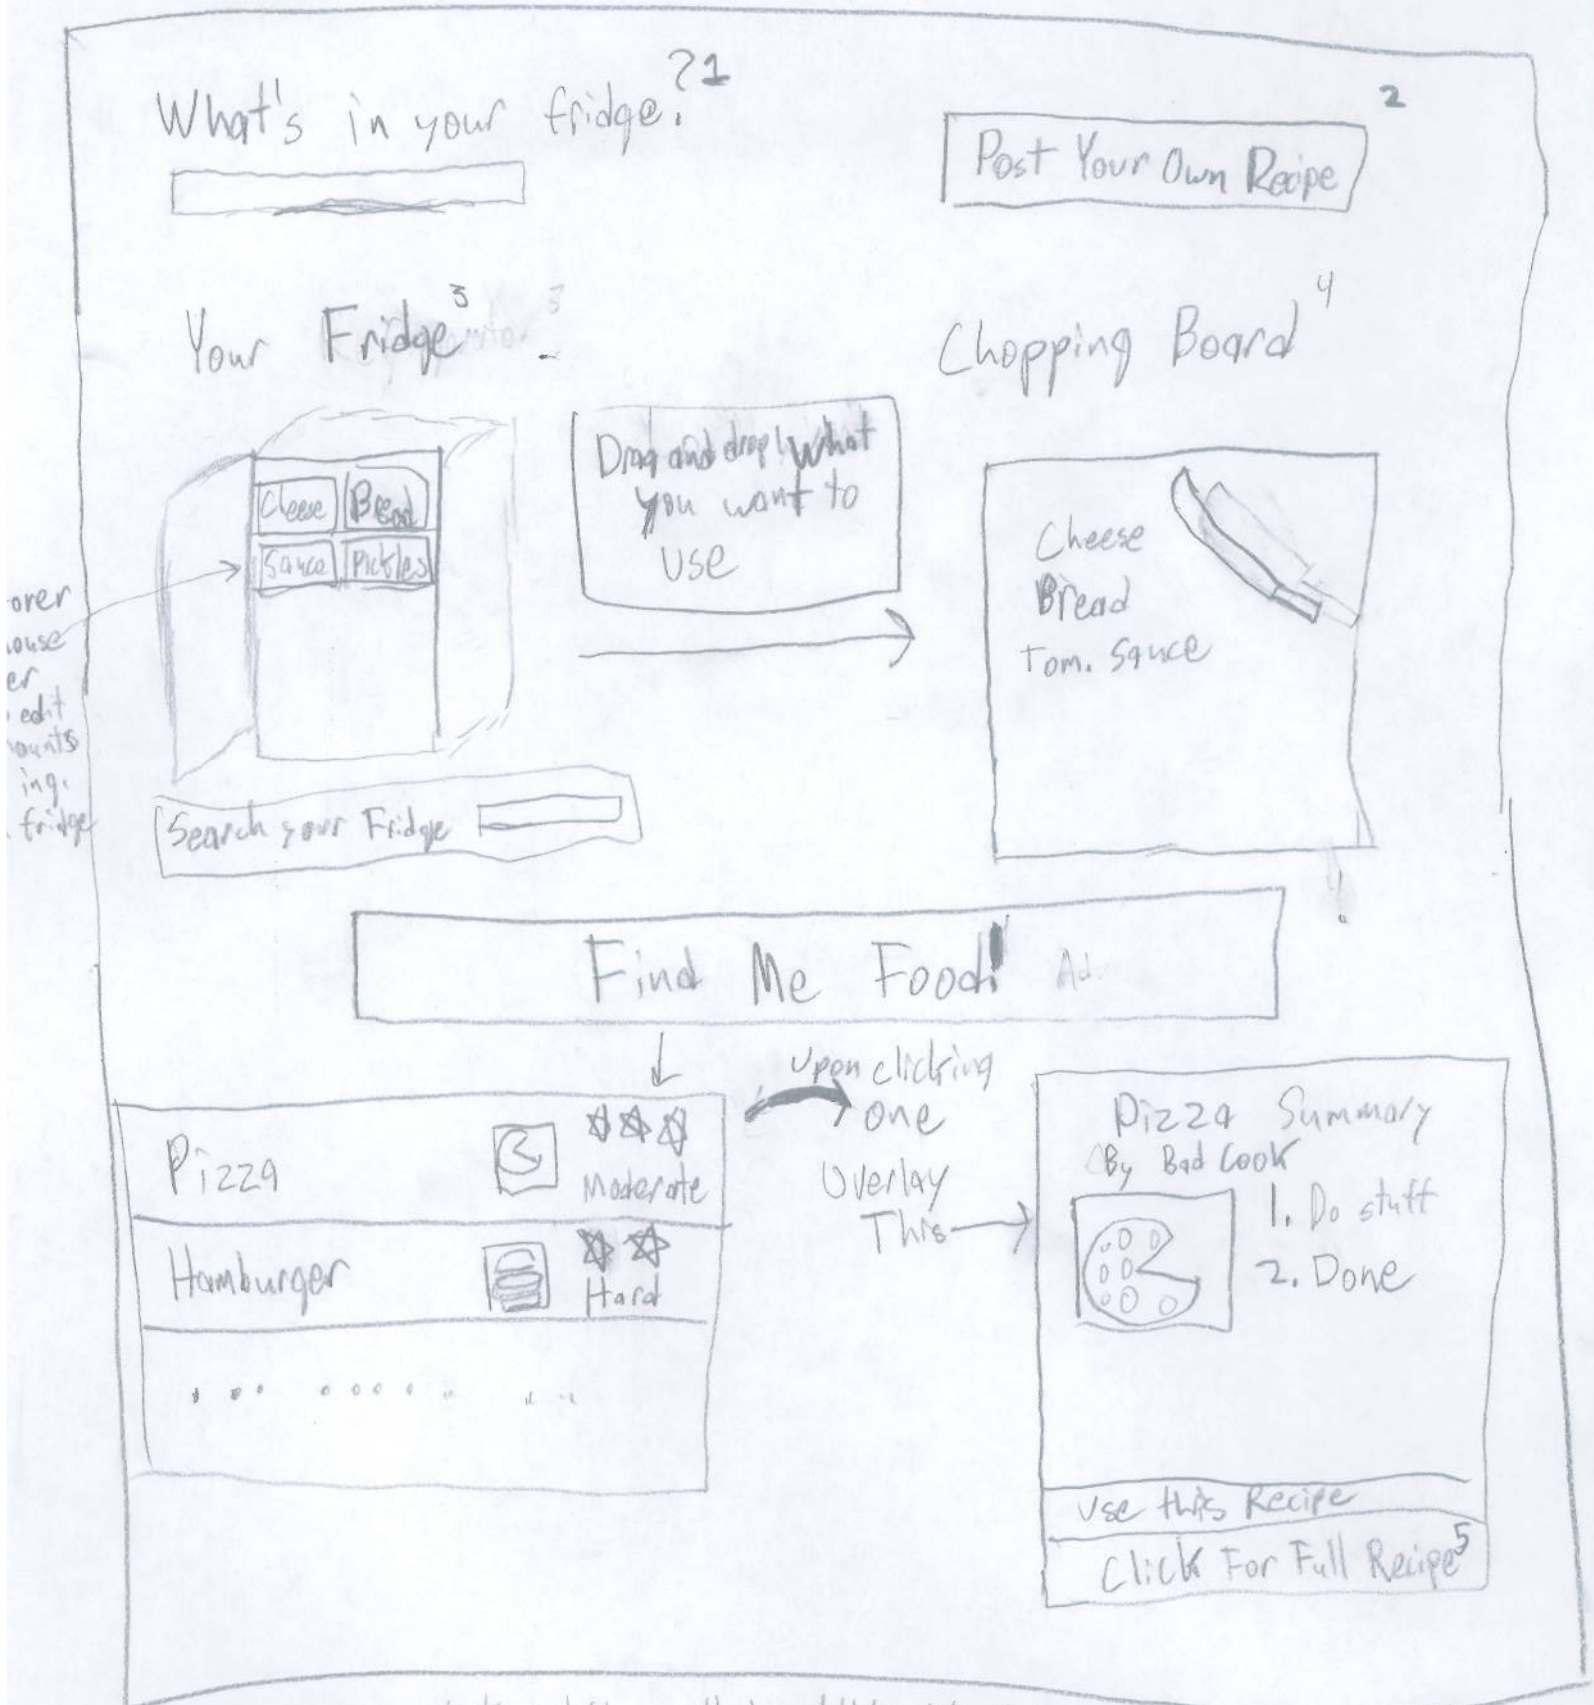 What's in your fridge? 1
2
Post Your Own Recipe
Your Fridge 3
3
Chopping Board 4
Cheese Bread
Sauce Pickles
Drag and drop what
you want to
use
Cheese
Bread
Tom. Sauce
over
ouse
er
edit
ounts
ing.
fridge
Search your Fridge
Find Me Food!
Ad
Pizza
Moderate
Hamburger
Hard
Upon clicking
one
Overlay
This
Pizza Summary
By Bad Cook
1. Do stuff
2. Done
Use this Recipe
Click For Full Recipe 5